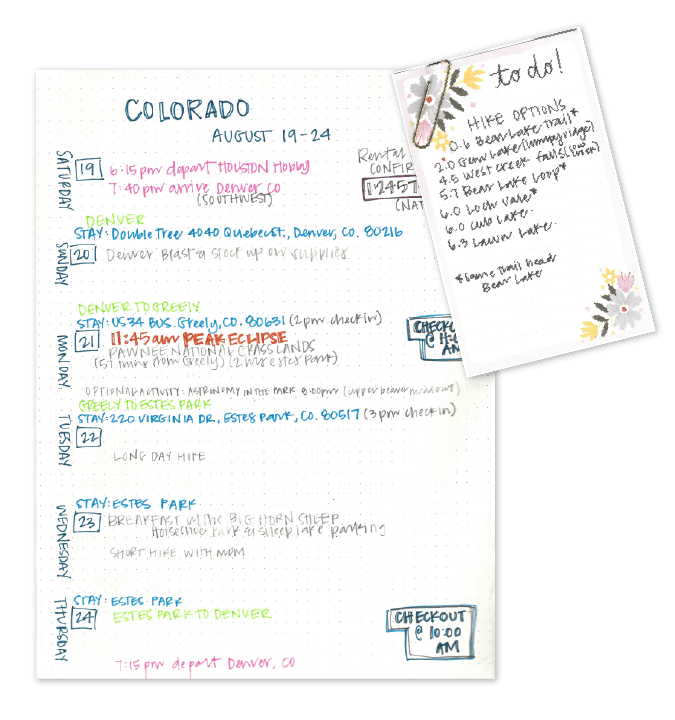 COLORADO
AUGUST 19-24
SATURDAY
19
6:15pm depart HOUSTON Hobby
7:40pm arrive Denver CO
(SOUTHWEST)
Rental
CONFIR
12457
(NAT
DENVER
STAY: Double Tree 4040 Quebec St., Denver, CO. 80216
SUNDAY
20
Denver Blast & stock up on supplies
DENVER TO GREELY
STAY: US 34 BUS. Greely, CO. 80631 (2pm check in)
MONDAY
21
11:45am PEAK ECLIPSE
PAWNEE NATIONAL GRASSLANDS
(57 mins from Greely) (2 hrs estes Park)
CHECKOU
@ 11:0
AM
OPTIONAL ACTIVITY: ASTRONOMY IN THE PARK 8:00pm (upper beaver meadows)
GREELY TO ESTES PARK
STAY: 220 VIRGINIA DR., ESTES PARK, CO. 80517 (3pm check in)
TUESDAY
22
LONG DAY HIKE
STAY: ESTES PARK
WEDNESDAY
23
BREAKFAST w/the BIG HORN SHEEP
Horseshoe Park & sheep lake parking
SHORT HIKE WITH MOM
STAY: ESTES PARK
THURSDAY
24
ESTES PARK TO DENVER
CHECKOUT
@ 10:00
AM
7:15pm depart Denver, CO
to do!
HIKE OPTIONS
0.6 Bear Lake Trail*
2.0 Gem Lake (lumpy ridge)
4.5 West Creek Falls
5.7 Bear Lake Loop*
6.0 Loch Vale*
6.0 Cub Lake
6.3 Lawn Lake
*Same trail head
Bear Lake